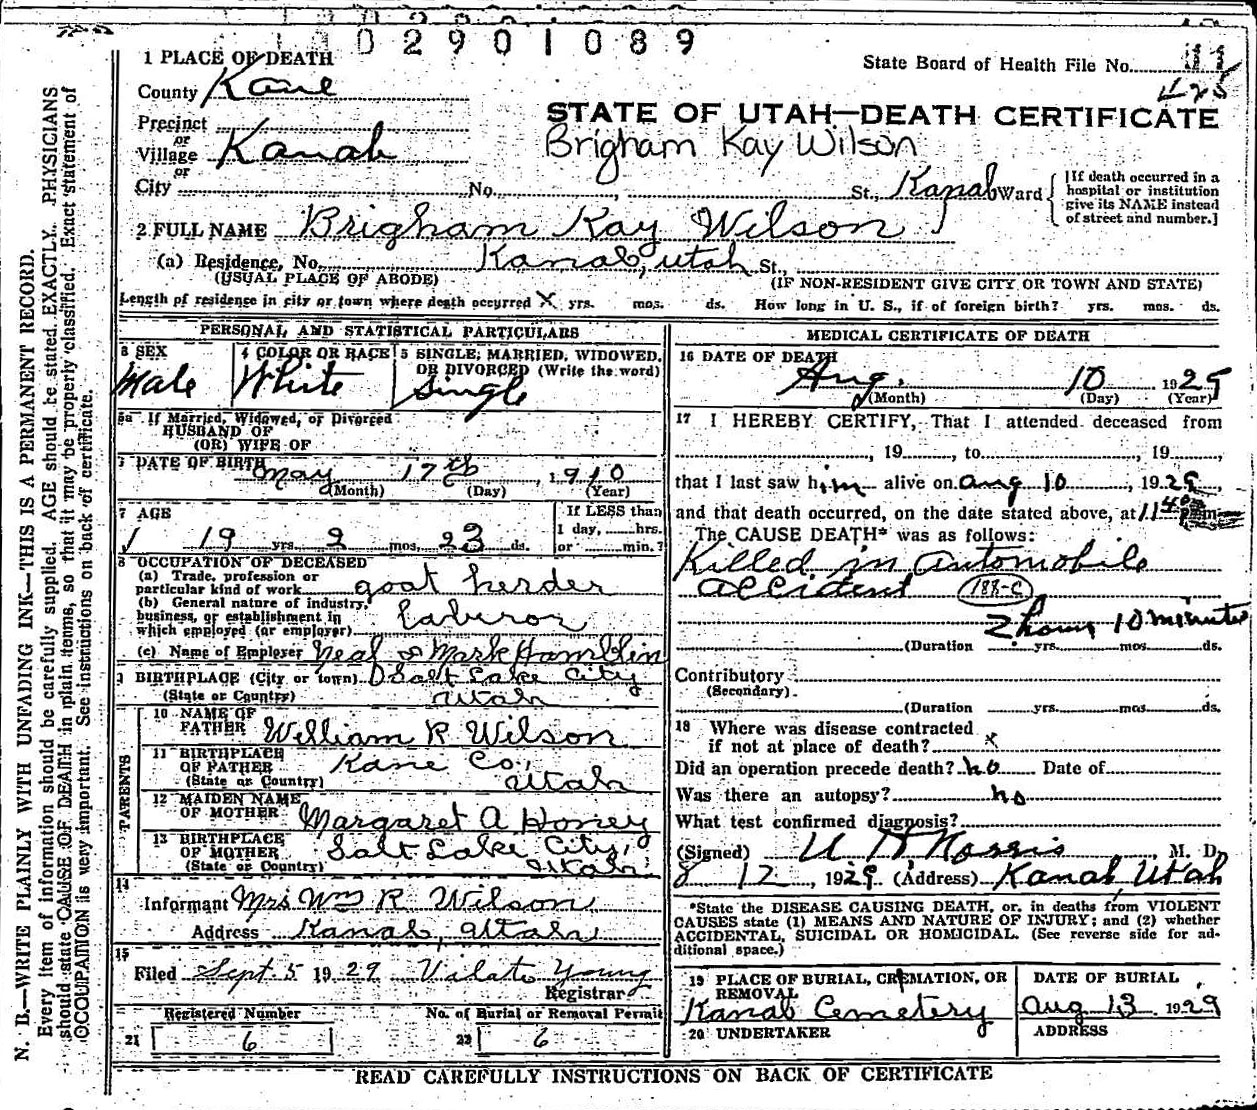 0 2 9 0 1 0 8 9
1 PLACE OF DEATH
State Board of Health File No. 11
425
County Kane
STATE OF UTAH—DEATH CERTIFICATE
Precinct
or
Village Kanab
Brigham Kay Wilson
or
City No. , St., Kanab Ward
[If death occurred in a hospital or institution give its NAME instead of street and number.]
2 FULL NAME Brigham Kay Wilson
(a) Residence, No. Kanab, Utah St.,
(USUAL PLACE OF ABODE) (IF NON-RESIDENT GIVE CITY OR TOWN AND STATE)
Length of residence in city or town where death occurred X yrs. mos. ds. How long in U. S., if of foreign birth? yrs. mos. ds.
PERSONAL AND STATISTICAL PARTICULARS
3 SEX
Male
4 COLOR OR RACE
White
5 SINGLE, MARRIED, WIDOWED, OR DIVORCED (Write the word)
Single
5a If Married, Widowed, or Divorced
HUSBAND OF
(OR) WIFE OF
DATE OF BIRTH May 17th, 1910
(Month) (Day) (Year)
7 AGE
19 yrs. 2 mos. 23 ds.
If LESS than
1 day, hrs.
or min.?
8 OCCUPATION OF DECEASED
(a) Trade, profession or
particular kind of work goat herder
(b) General nature of industry,
business, or establishment in
which employed (or employer) laburor
(c) Name of Employer Neal & Mark Hamblin
BIRTHPLACE (City or town) Salt Lake City
(State or Country) Utah
PARENTS
10 NAME OF
FATHER William R Wilson
11 BIRTHPLACE
OF FATHER Kane Co,
(State or Country) Utah
12 MAIDEN NAME
OF MOTHER Margaret A Honey
13 BIRTHPLACE
OF MOTHER Salt Lake City,
(State or Country) Utah
14
Informant Mrs Wm R Wilson
Address Kanab, Utah
15
Filed Sept. 5 1929 Vilate Young
Registrar
Registered Number No. of Burial or Removal Permit
21 6 22 6
MEDICAL CERTIFICATE OF DEATH
16 DATE OF DEATH
Aug. 10 1929
(Month) (Day) (Year)
17 I HEREBY CERTIFY, That I attended deceased from
, 19 , to , 19 ,
that I last saw him alive on Aug 10, 1929,
and that death occurred, on the date stated above, at 11 40
The CAUSE DEATH* was as follows:
Killed in automobile
accident 188-C
2 hours 10 minutes
(Duration yrs. mos. ds.
Contributory
(Secondary)
(Duration yrs. mos. ds.
18 Where was disease contracted
if not at place of death? x
Did an operation precede death? no Date of
Was there an autopsy? no
What test confirmed diagnosis?
(Signed) Norris M. D.
8 12, 1929 (Address) Kanab, Utah
*State the DISEASE CAUSING DEATH, or, in deaths from VIOLENT
CAUSES state (1) MEANS AND NATURE OF INJURY; and (2) whether
ACCIDENTAL, SUICIDAL OR HOMICIDAL. (See reverse side for ad-
ditional space.)
19 PLACE OF BURIAL, CREMATION, OR
REMOVAL
Kanab Cemetery
DATE OF BURIAL
Aug 13 1929
20 UNDERTAKER
ADDRESS
READ CAREFULLY INSTRUCTIONS ON BACK OF CERTIFICATE
N. B.—WRITE PLAINLY WITH UNFADING INK—THIS IS A PERMANENT RECORD.
Every item of information should be carefully supplied. AGE should be stated EXACTLY. PHYSICIANS
should state CAUSE OF DEATH in plain terms, so that it may be properly classified. Exact statement of
OCCUPATION is very important. See instructions on back of certificate.